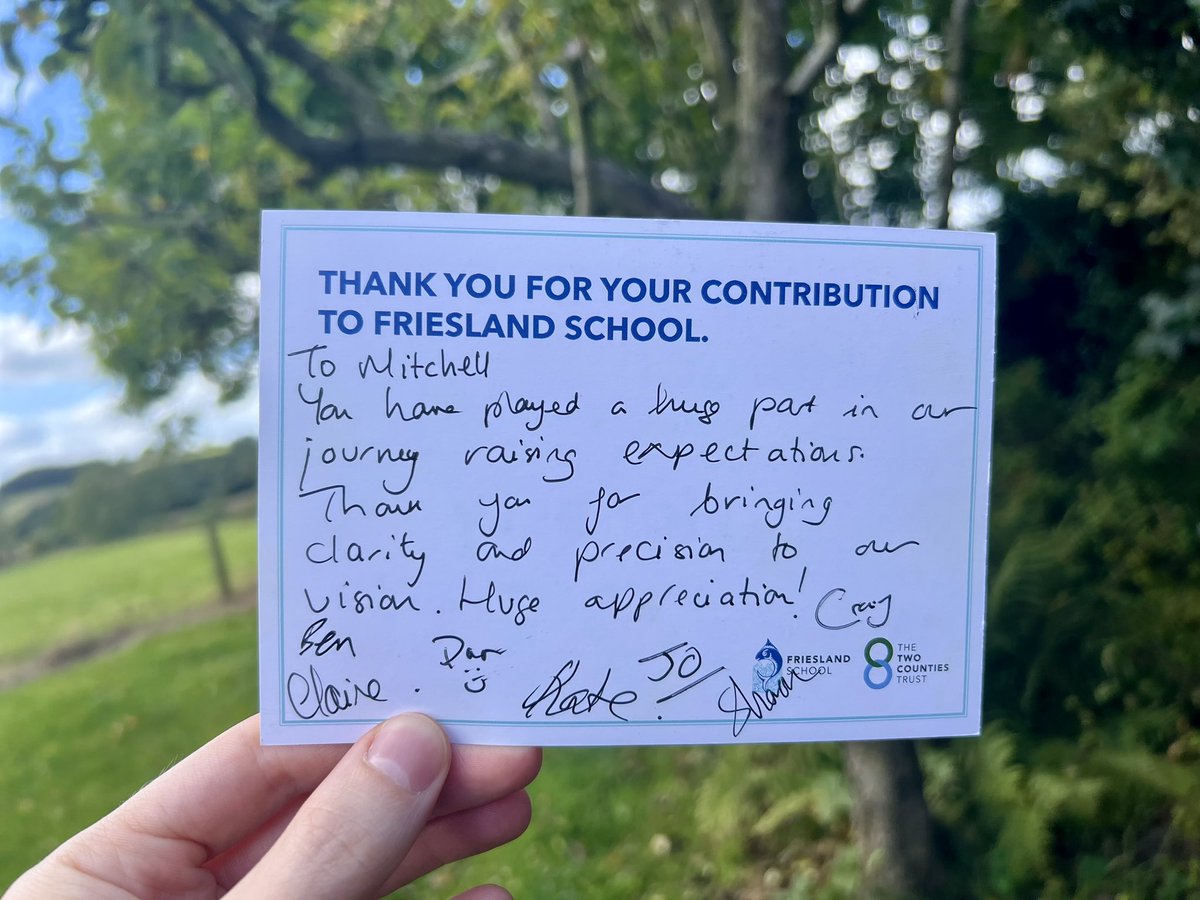 THANK YOU FOR YOUR CONTRIBUTION
TO FRIESLAND SCHOOL.
To Mitchell
You have played a huge part in our
journey raising expectations.
Thank you for bringing
clarity and precision to our
vision. Huge appreciation! Craig
Ben
Dan
Claire
Kate
JO
FRIESLAND
SCHOOL
THE
TWO
COUNTIES
TRUST